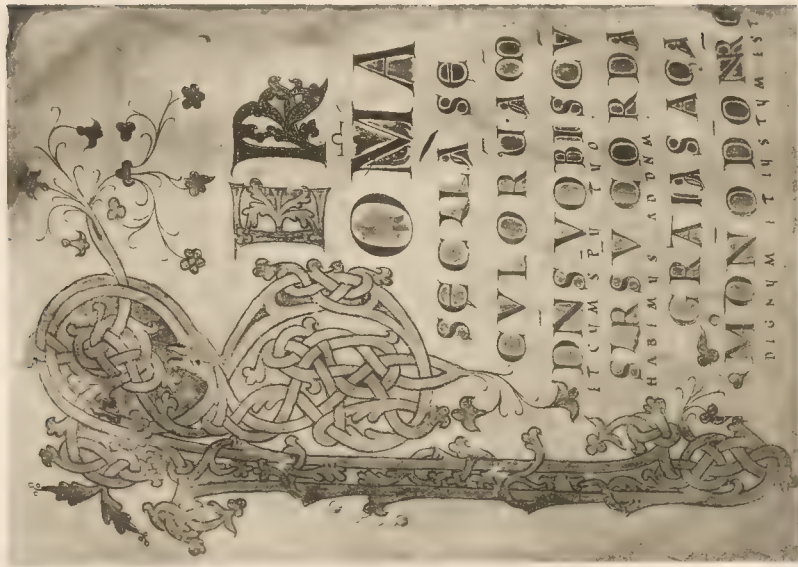 PER
OMA
SECULA SE
CVLORŪ·AM̄
DN̄S VOBISCV̄
ETCVM SPŪ TUO
SURSV̄ CORDA
HABEMUS ADDNM
GRATIAS AGA
DŌNRO
DIGNUM ET IUSTUM EST